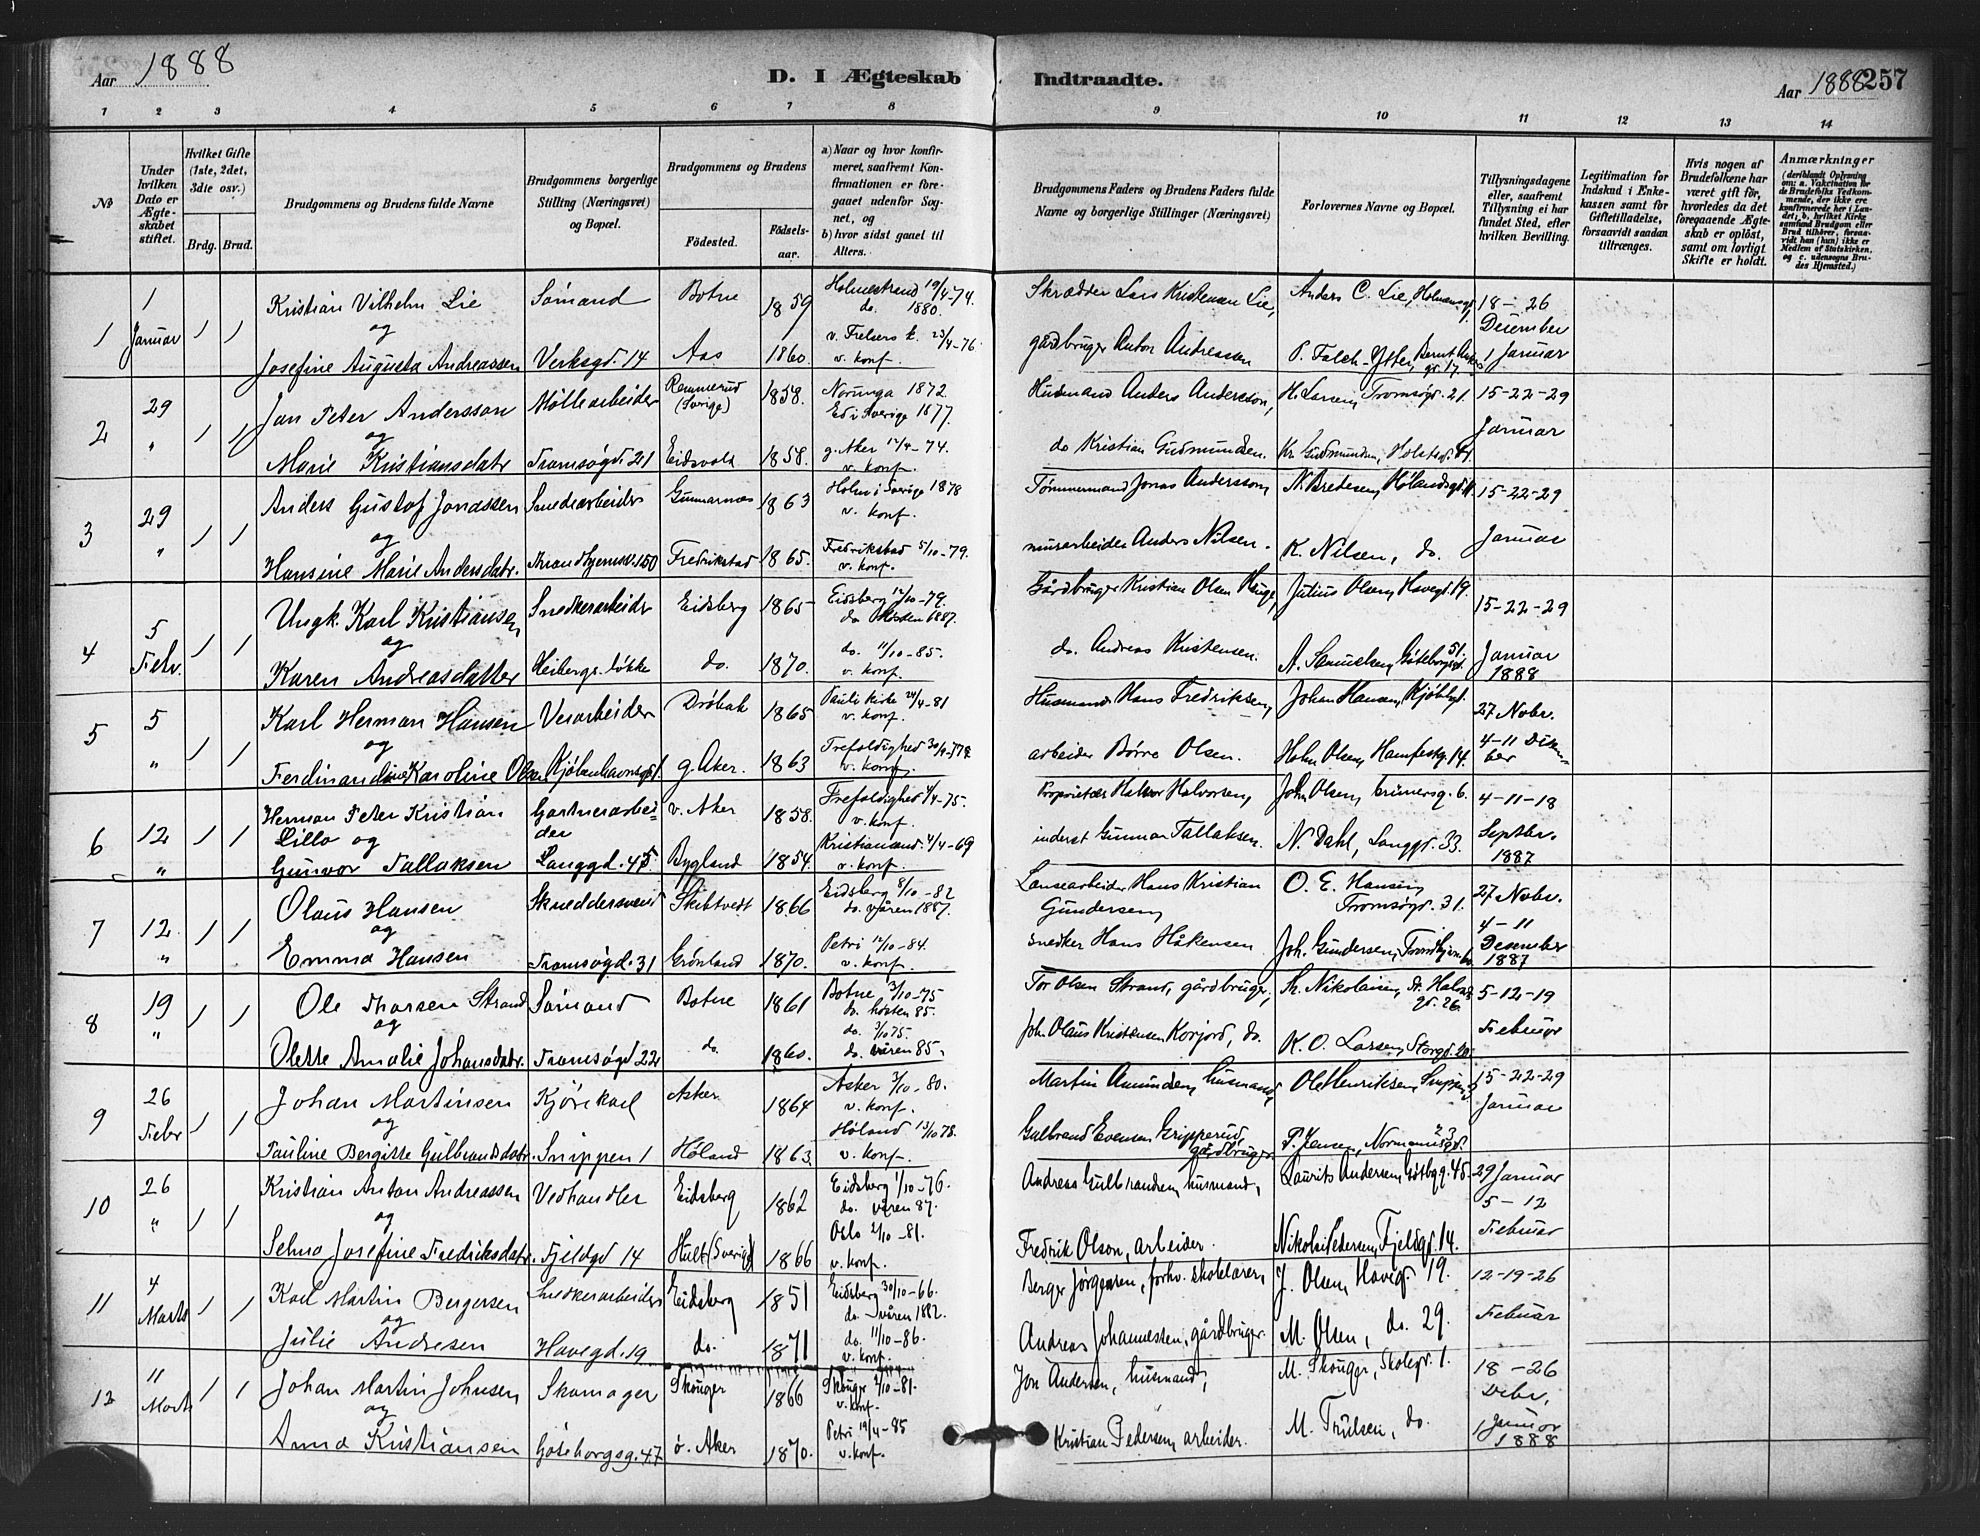 Aar 1888
D. I Ægteskab Indtraadte.
Aar 1888 257
1 2 3 4 5 6 7 8 9 10 11 12 13 14
No
Under hvilken Dato er Ægteskabet stiftet.
Hvilket Gifte (1ste, 2det, 3die osv.)
Brdg. Brud.
Brudgommens og Brudens fulde Navne
Brudgommens borgerlige Stilling (Næringsvei) og Bopæl.
Brudgommens og Brudens
Fødested.
Fødselsaar.
a) Naar og hvor konfirmeret, saafremt Konfirmationen er foregaaet udenfor Sognet, og
b) hvor sidst gaaet til Alters.
Brudgommens Faders og Brudens Faders fulde Navne og borgerlige Stillinger (Næringsvei)
Forlovernes Navne og Bopæl.
Tillysningsdagene eller, saafremt Tillysning ei har fundet Sted, efter hvilken Bevilling.
Legitimation for Indskud i Enkekassen samt for Giftetilladelse, forsaavidt saadan tiltrænges.
Hvis nogen af Brudefolkene har været gift før, hvorledes da det foregaaende Ægteskab er opløst, samt om lovligt Skifte er holdt.
Anmærkninger (deriblandt Oplysning om: a. Vaccination for de Brudefolks Vedkommende, der ikke ere konfirmerede her i Landet; b. hvilket Kirkesamfund Brudgom eller Brud tilhører, forsaavidt han (hun) ikke er Medlem af Statskirken, og c. udensogns Brudes Hjemsted.)
1 1 Januar 1 1 Kristian Vilhelm Lie Sömand Botne 1859 Holmestrand 19/4-74. do. 1880. Skrædder Lars Kristensen Lie, Anders C. Lie, 18-26 Desember
og
Josefine Augusta Andreassen Verksgd. 14 Aas 1860. v. Frelsers k. 23/4-76. v. konf. gårdbruger Anton Andreassen P. Falch-Ytter, Bernt Ankers g. 17. 1 Januar
2 29 " 1 1 Jan Peter Andersson Möllearbeider Rammerud (Sverige) 1858. Noringa 1872. Ed i Sverige 1877. Husmand Anders Andersson, H. Larsen, Tromsøgd. 21. 15-22-29
og
Marie Kristiansdatr Tromsøgd. 21 Eidsvold 1858. g. Aker 12/4-74. v. konf. do Kristian Gudmundsen. Kr. Gudmundsen, Januar
3 29 " 1 1 Anders Gustaf Jonassen Smedearbeider Gunnarnæs 1863 Holm i Sverige 1878 v. konf. Tömmermand Jonas Andersson, N. Bredesen, Hølandsgd. 15-22-29
og
Hansine Marie Andersdatr. Trondhjemsv. 150 Fredrikstad 1865. Fredrikstad 5/10-79. v. konf. murarbeider Anders Nilsen. K. Nilsen, do. Januar
4 5 Febr. 1 1 Ungk. Karl Kristiansen Snedkerarbeider Eidsberg 1865 Eidsberg 12/10-79. do Høsten 1887. Gårdbruger Kristian Olsen Hauge, Julius Olsen, Havegd. 19. 15-22-29
og
Karen Andreasdatter Heibergs løkke do. 1870. do. 11/10-85. v. konf. do. Andreas Kristensen. A. Samuelsen, Göteborgsgd. 51. Januar 1888
5 5 " 1 1 Karl Herman Hansen Verarbeider Dröbak 1865 Pauli Kirke 24/4-81 v. konf. Husmand Hans Fredriksen, Johan Hansen, Kjöbhgd. 27 Nobr.
og
Ferdinandine Karoline Olsen Kjöbenhavnsgd. 1. g. Aker. 1863 Trefoldighed 30/4-78. v. konf. arbeider Börre Olsen. Halv. Olsen, Hamfestg. 14. 4-11 Desember
6 12 " 1 1 Herman Peter Kristian Lillo og Gartnerarbeider v. Aker 1858. Trefoldighed 4/4-75. v. konf. Proprietær Halvor Halvorsen, Joh. Olsen, Grünersg. 6. 4-11-18
Gunvor Tallaksen Langgd. 45. Bygland 1854. Kristiansand 4/4-69 v. konf. inderst Gunnar Tallaksen. N. Dahl, Langgd. 33. Septbr. 1887
7 12 " 1 1 Olaus Hansen Skreddersvend Skibtvedt 1866 Eidsberg 8/10-82 do. våren 1887. Lensearbeider Hans Kristian Gundersen, O. E. Hansen, Tromsøgd. 31. 27 Nobr.
og
Emma Hansen Tromsøgd. 31 Grönland 1870. Petri 12/10-84. v. konf. snedker Hans Håkensen Joh. Gundersen, 4-11 Desember 1887
8 19 " 1 1 Ole Thorsen Strand Sömand Botne 1861 Botne 3/10-75 do. høsten 85. Tor Olsen Strand, gårdbruger, Th. Nikolaisen, St. Halvards gd. 26. 5-12-19
og
Olette Amalie Johansdatr. Tromsøgd 22 do. 1860. do. 3/10 75. do. våren 85. Joh. Olaus Kristensen Korjord, do. K. O. Larsen, Storgd. 20. Februar
9 26 Febr 1 1 Johan Martinsen Kjörekarl Asker 1864 Asker 3/10-80. v. konf. Martin Amundsen, husmand, Ole Henriksen, Snippen 15-22-29 Januar
og
Pauline Bergitte Gulbrandsdatr. Snippen 1 Höland 1863. Höland 13/10 78. v. konf. Gulbrand Evensen Gripperud, gårdbruger P. Jensen, Normansgd. 23
10 26 " 1 1 Kristian Anton Andreassen Vedhandler Eidsberg 1862 Eidsberg 1/10-76. do. våren 87. Andreas Gulbrandsen, husmand, Laurits Andersen, Götbgg. 45. 29 Januar
og
Selma Josefine Fredriksdatr. Fjeldgd 14 Hult (Sverige) 1866 Oslo 2/10-81. v. konf. Fredrik Olson, arbeider. Nikolai Pedersen, Fjeldgd. 14. 5-12 Februar
11 4 Marts 1 1 Karl Martin Bergersen Snedkerarbeider Eidsberg 1851 Eidsberg 30/10-66. do våren 1882. Berger Jörgensen, forhv. skolelærer, J. Olsen, Havegd. 19. 12-19-26
og
Julie Andresen Havegd. 19 do. 1871 do. 11/10-86. v. konf. Andreas Johannessen, gårdbruger. M. Olsen, do. 29. Februar
12 11 Marts 1 1 Johan Martin Johnsen Skomager Skouger 1866 Skouger 2/10-81. v. konf. Jon Andersen, husmand, M. Skouger, Skolegd. 1. 18-26 Debr.,
og
Anna Kristiansen Göteborgsg. 47 ö. Aker 1870. Petri 19/4-85 v. konf. Kristian Pedersen, arbeider. M. Trulsen, do. 1 Januar 1888